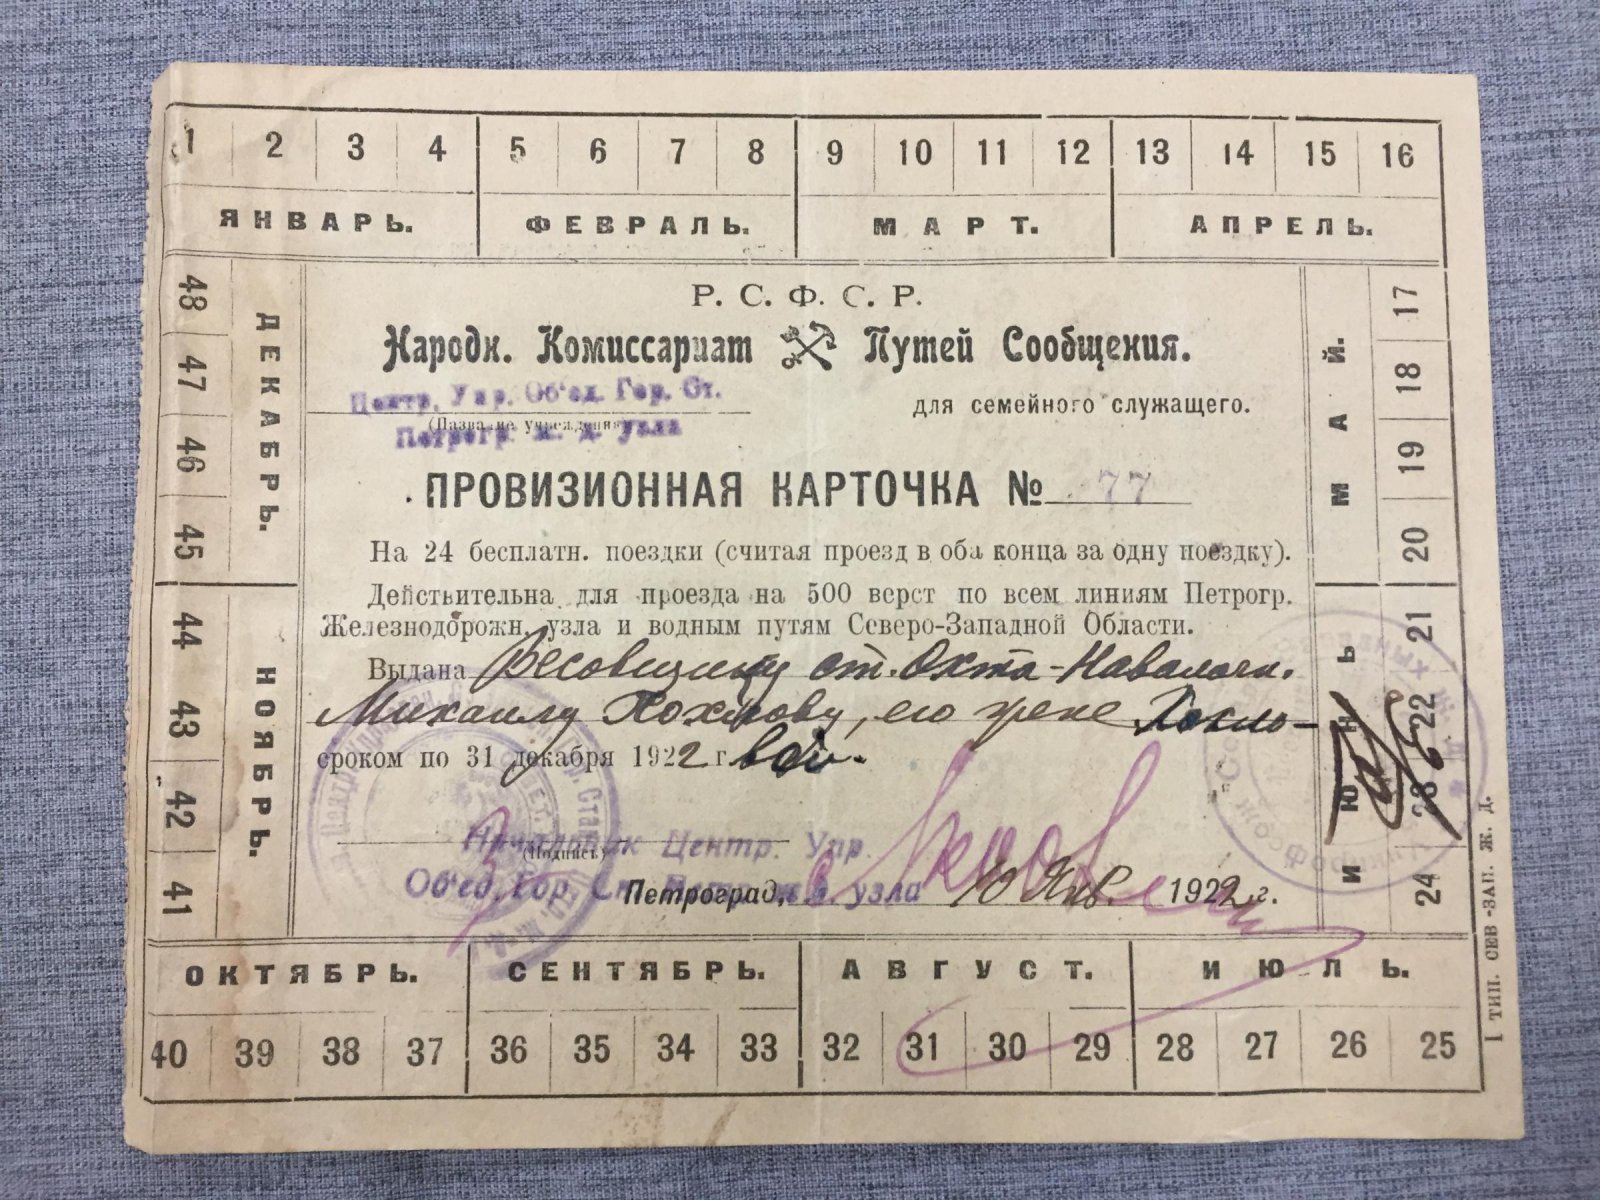 1 2 3 4 5 6 7 8 9 10 11 12 13 14 15 16
ЯНВАРЬ. ФЕВРАЛЬ. МАРТ. АПРЕЛЬ.
17 18 19 20
МАЙ.
21 22 23 24
ИЮНЬ
Р. С. Ф. С. Р.
Народн. Комиссариат Путей Сообщения.
Центр. Упр. Об'ед. Гор. Ст.
для семейного служащего.
(Название учреждения)
Петрогр. ж. д. узла
ПРОВИЗИОННАЯ КАРТОЧКА № 77
На 24 бесплатн. поездки (считая проезд в оба конца за одну поездку).
Действительна для проезда на 500 верст по всем линиям Петрогр.
Железнодорожн. узла и водным путям Северо-Западной Области.
Выдана Весовщику ст. Охта-Навалочн.
Михаилу его
сроком по 31 декабря 1922 г.
Начальник Центр. Упр.
(Подпись)
Об'ед. Гор. Ст. узла
Петроград, 10 Янв. 1922 г.
48 47 46 45
ДЕКАБРЬ.
44 43 42 41
НОЯБРЬ.
ОКТЯБРЬ. СЕНТЯБРЬ. АВГУСТ. ИЮЛЬ.
40 39 38 37 36 35 34 33 32 31 30 29 28 27 26 25
1 ТИП. СЕВ-ЗАП. Ж. Д.